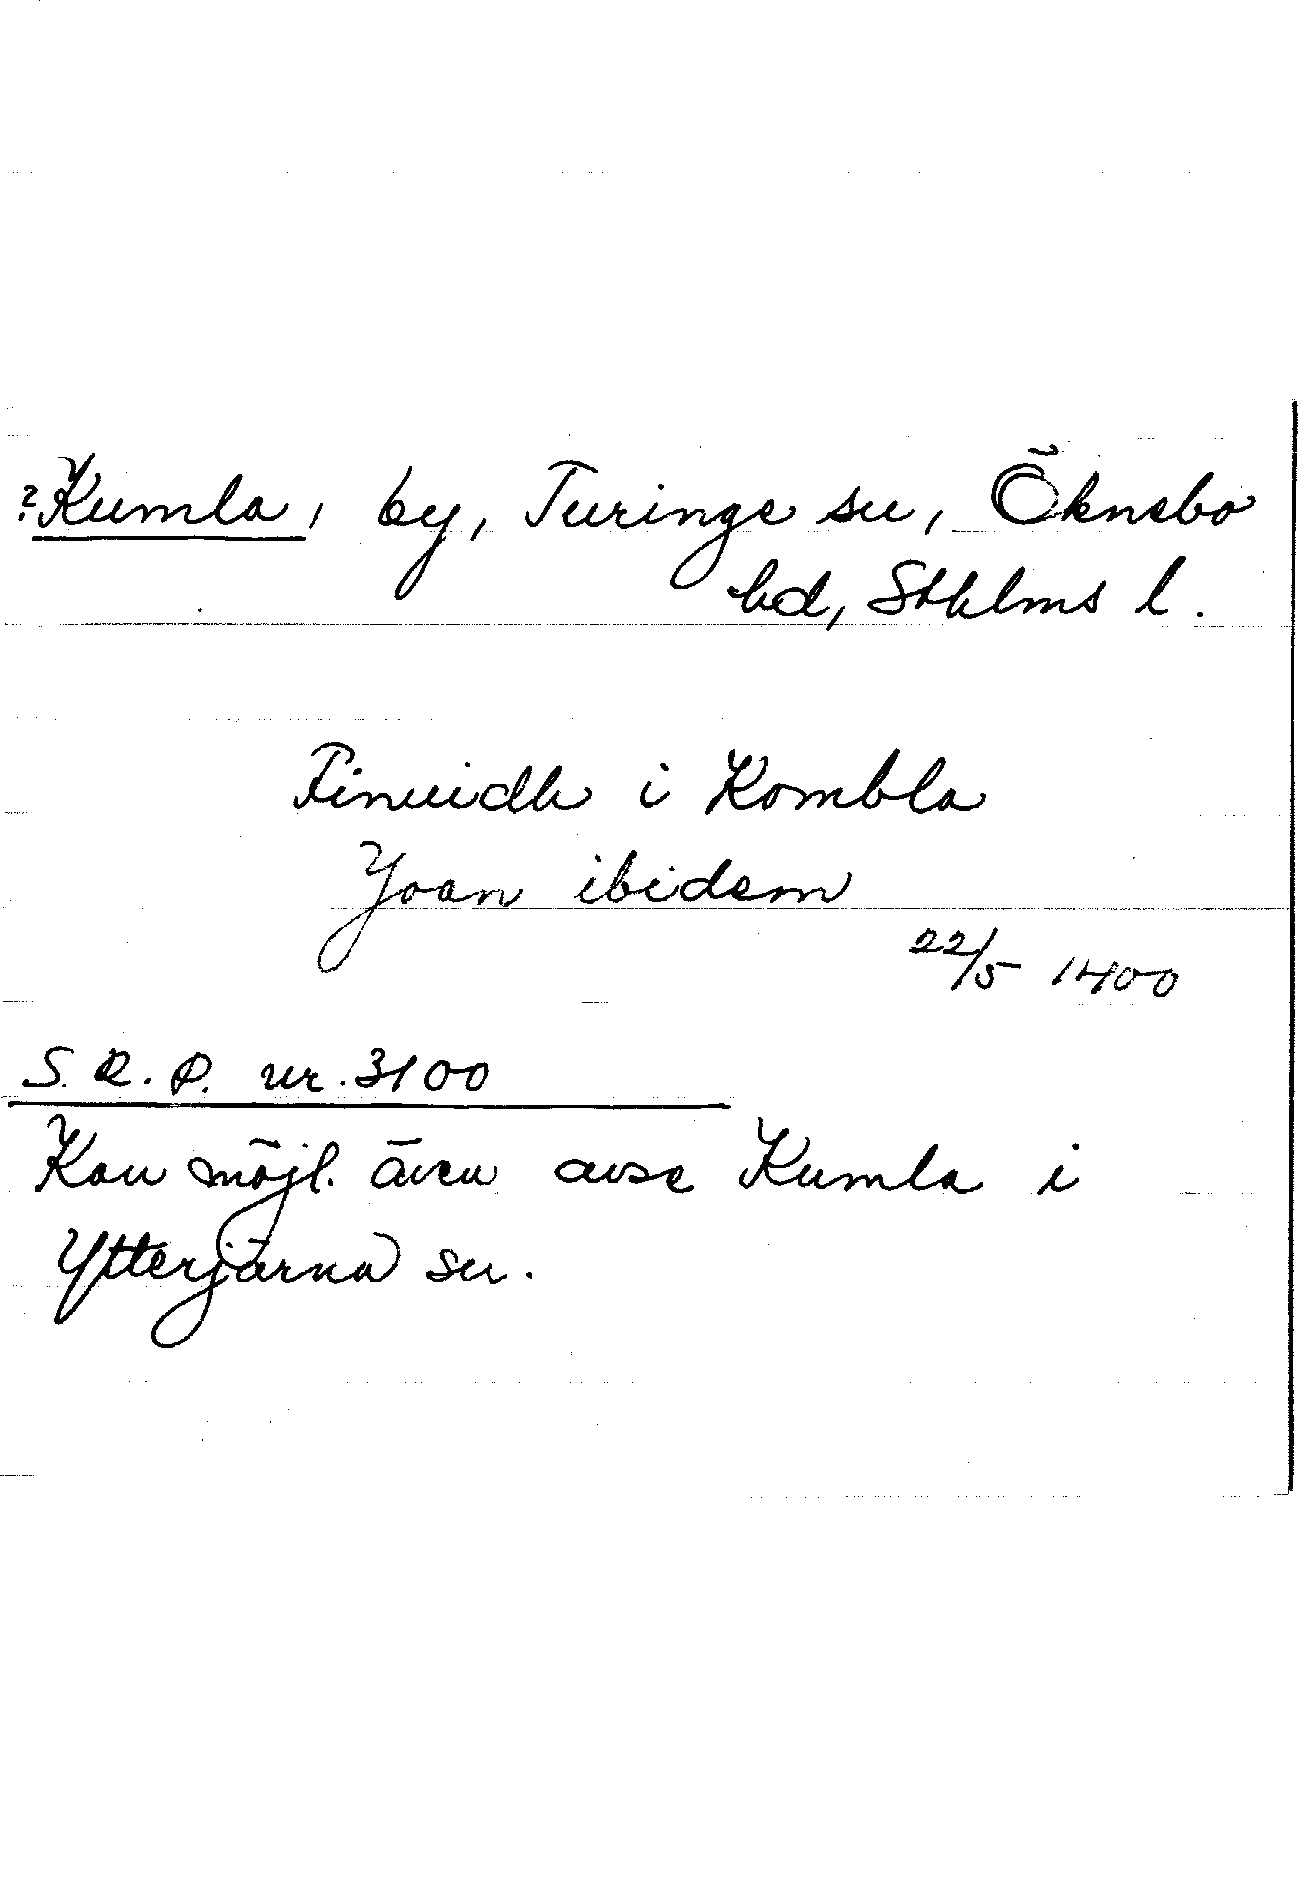 ?Kumla, by, Turinge sn, Öknebo
hd, Sthlms l.
Finuidh i Kombla
Joan ibidem
22/5 1400
S.R.P. nr. 3100
Kan möjl. även avse Kumla i
Ytterjärna sn.